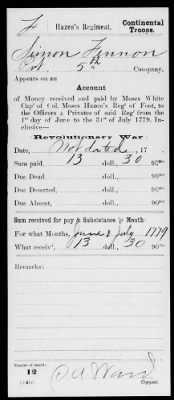 F Hazen's Regiment. Continental Troops.
Simon Fennon
Cpl. 5th Company.
Appears on an
Account
of Money received and paid by Moses White
Cap' of Col. Moses Hazen's Reg' of Foot, to
the Officers & Privates of said Reg' from the
1st day of June to the 31st of July 1779. In-
clusive—
Revolutionary War
Date, Not dated, 17
Sum paid, 13 doll, 30 90ths
Due Dead, doll, 90ths
Due Deserted, doll, 90ths
Due Absent, doll, 90ths
Sum received for pay & Subsistance ℔ Month:
For what Months, June & July 1779
What receivd, 13 doll, 30 90ths
Remarks:
Number of record:
12
Copyist.